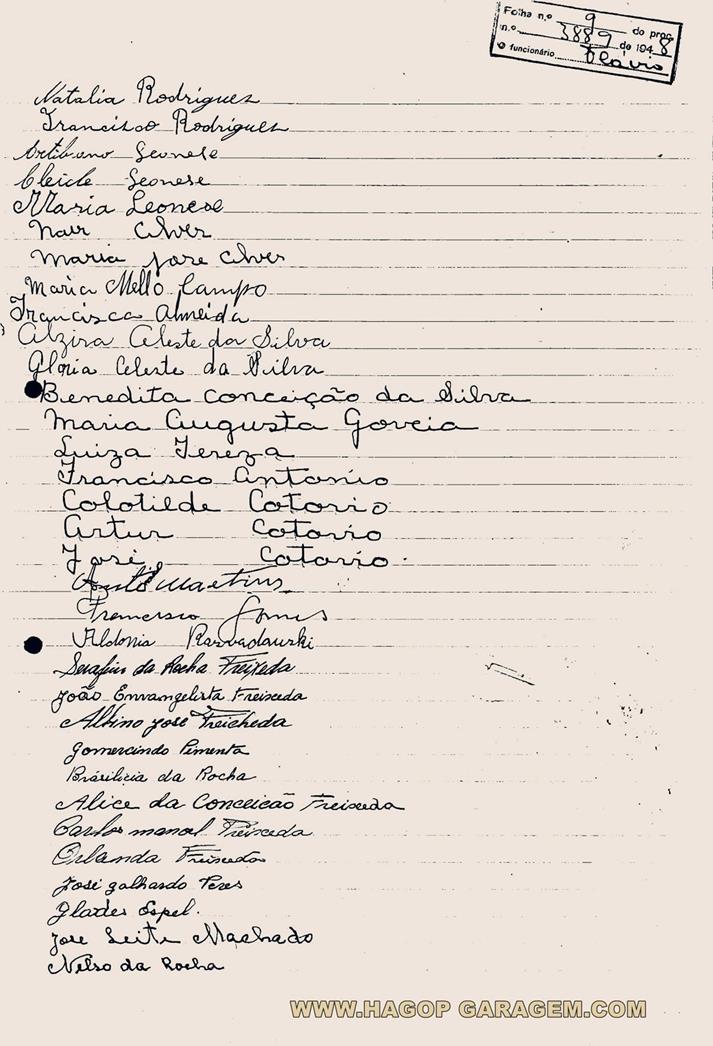 Folha n.º 9 do proc.
n.º 3889 de 1948
o funcionário Flavio
Natalia Rodrigues
Francisco Rodrigues
Leonese
Cleide Leonese
Maria Leonese
Nair Alves
Maria Jose Alves
Maria Mello Campo
Francisca Almeida
Alzira Celeste da Silva
Gloria Celeste da Silva
Benedita Conceição da Silva
Maria Augusta Goveia
Luiza Tereza
Francisco Antonio
Colotilde Cotorio
Artur Cotovio
José Cotovio.
Martins
Francisco Gomes
Aldonia
Serafim da Rocha Freixeda
João Envangelista Freixeda
Albino José Freicheda
Gomercindo Pimenta
Brasilicia da Rocha
Alice da Conceicão Freixeda
Carlos manoel Freixeda
Orlanda Freixeda
José galhardo Peres
Glades Espel.
Jose Leite Machado
Nelso da Rocha
WWW.HAGOP GARAGEM.COM